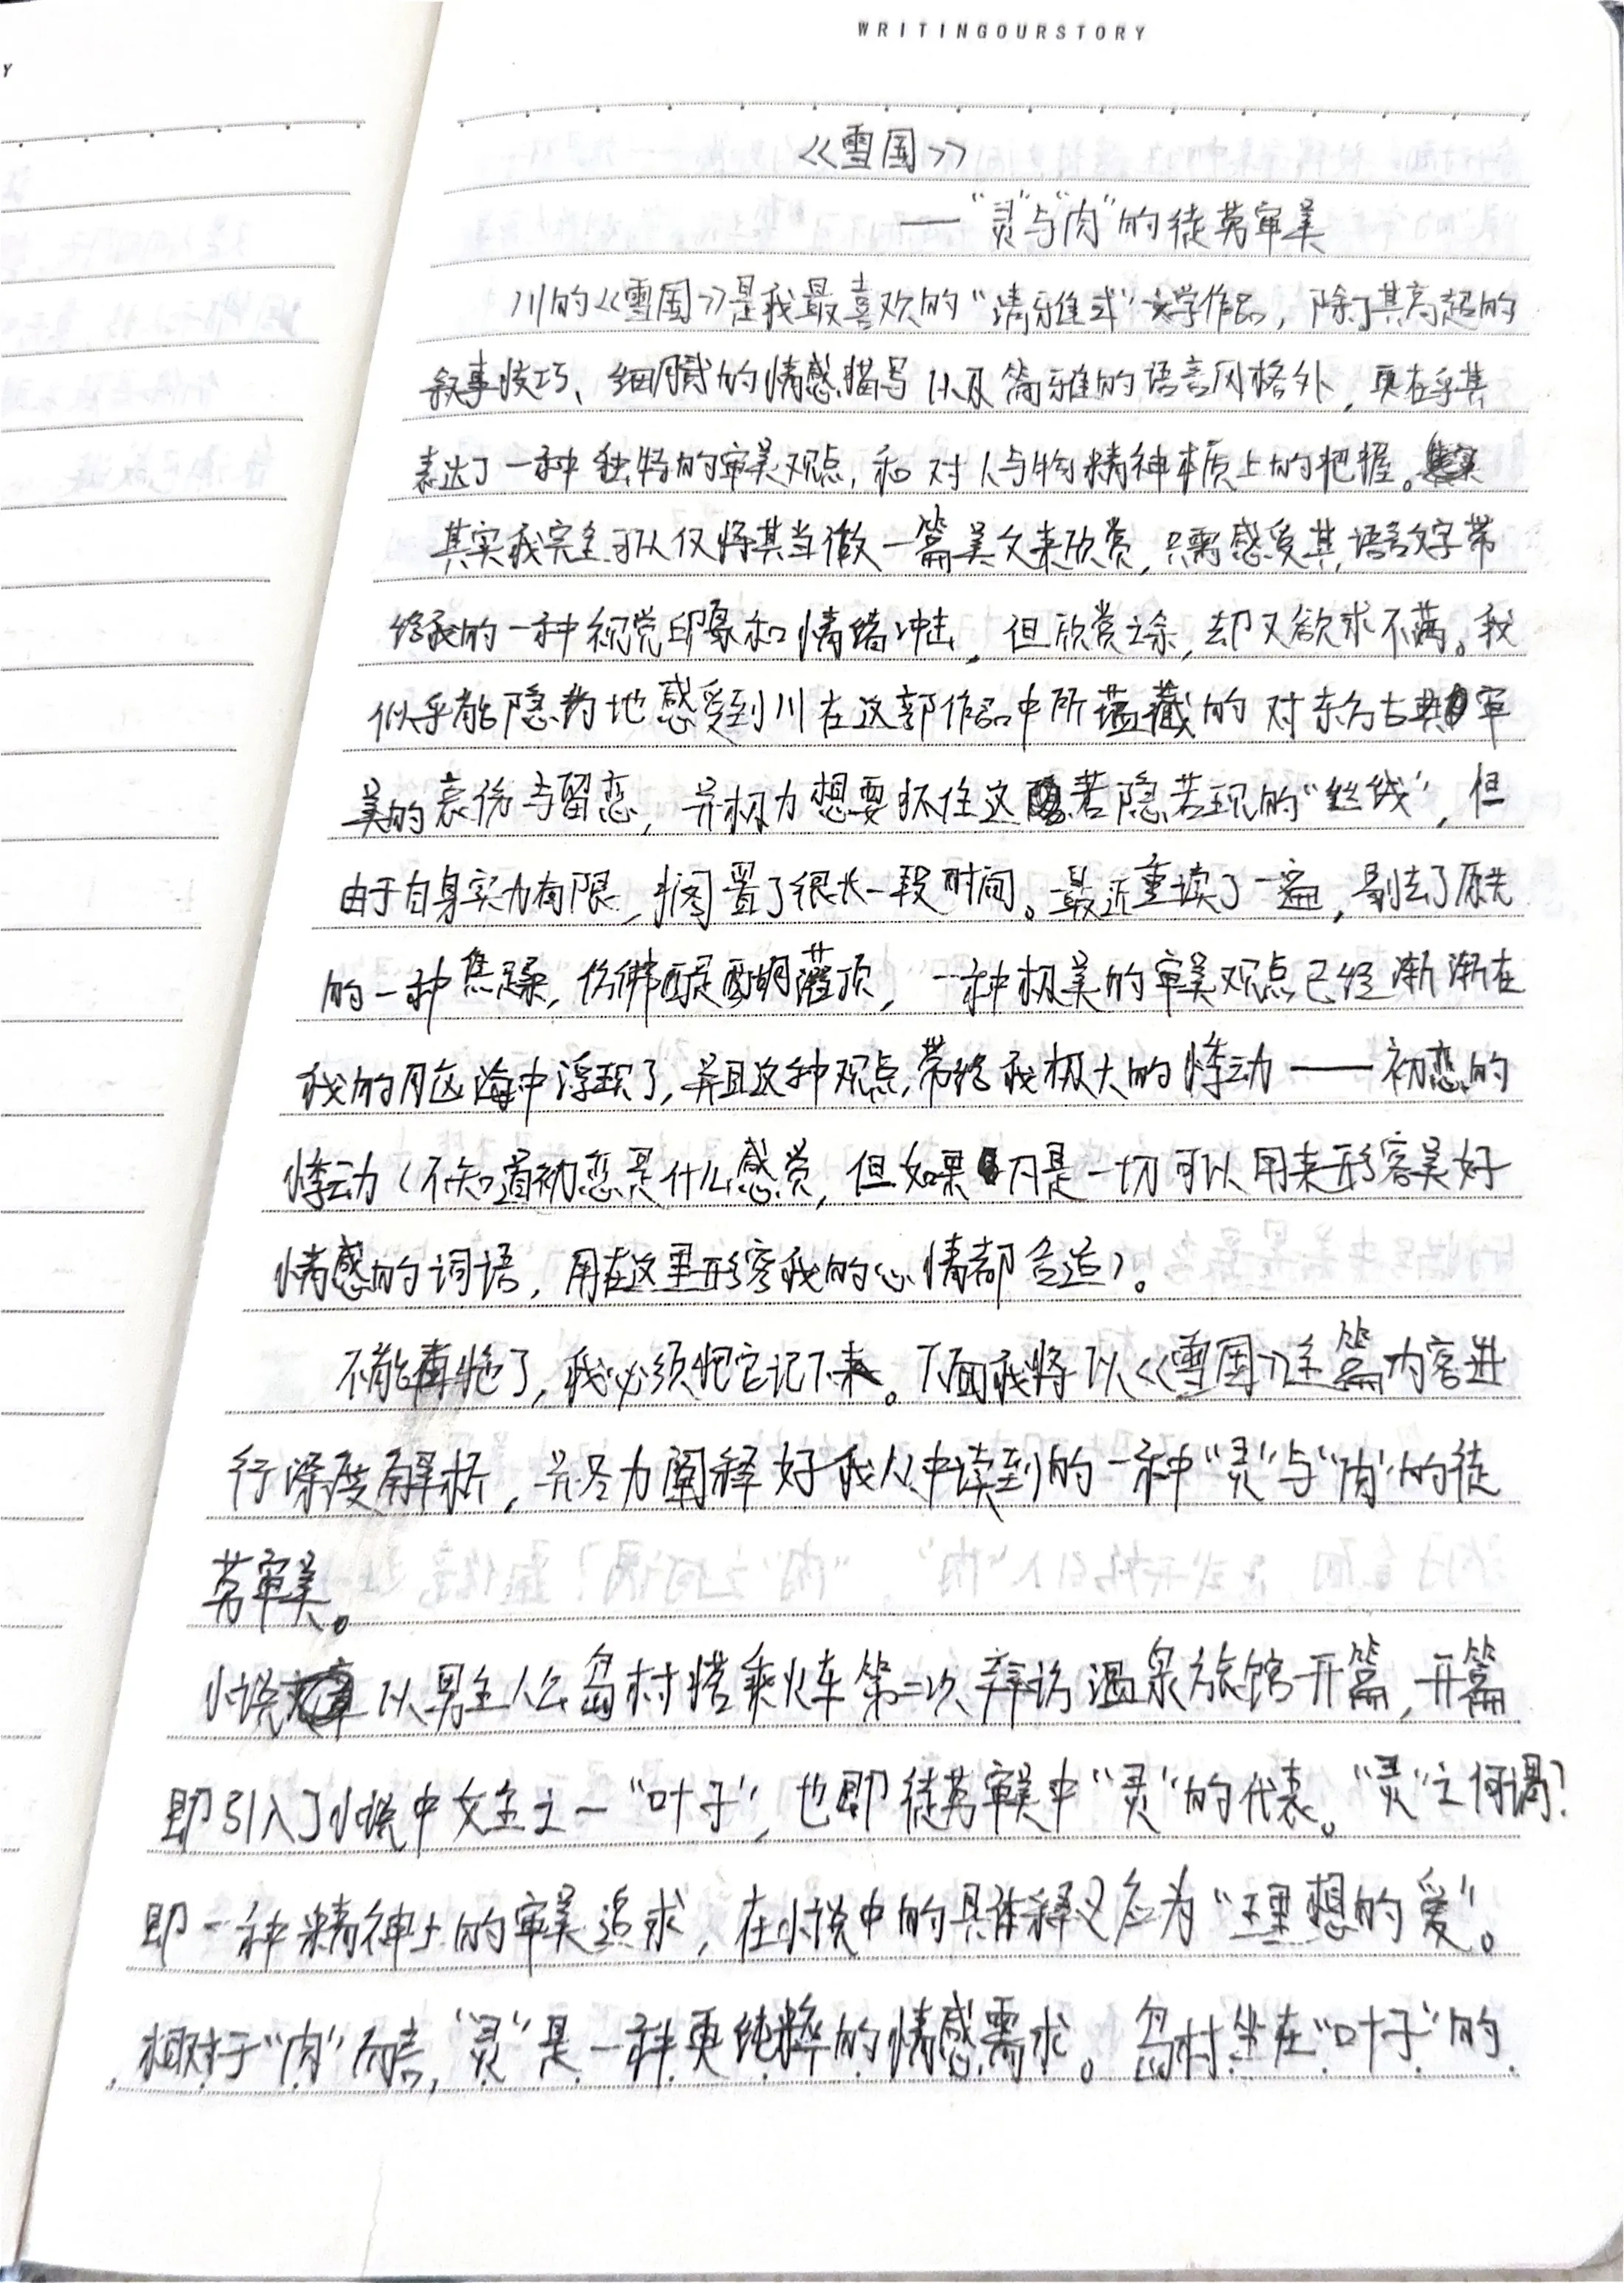 WRITINGOURSTORY
Y
《雪国》
—“灵”与“肉”的徒劳审美
川的《雪国》是我最喜欢的“清雅式”文学作品，除了其高超的
叙事技巧、细腻的情感描写以及简雅的语言风格外，更在乎其
表达了一种独特的审美观点，和对人与物精神本质上的把握。
其实我完全可以仅将其当做一篇美文来欣赏，只需感受其语言文字带
给我的一种视觉印象和情绪冲击，但欣赏之余，却又欲求不满。我
似乎能隐约地感受到川在这部作品中所蕴藏的对东方古典审
美的哀伤与留恋，并极力想要抓住这若隐若现的“丝线”，但
由于自身实力有限，搁置了很长一段时间。最近重读了一遍，剔去了原先
的一种焦躁，仿佛醍醐灌顶，一种极美的审美观点已经渐渐在
我的脑海中浮现了，并且这种观点带给我极大的悸动——初恋的
悸动（不知道初恋是什么感觉，但如果凡是一切可以用来形容美好
情感的词语，用在这里形容我的心情都合适）。
不能再拖了，我必须把它记下来。下面我将以《雪国》这篇内容进
行深度解析，并尽力阐释好我从中读到的一种“灵”与“肉”的徒
劳审美。
小说以男主人公岛村搭乘火车第二次拜访温泉旅馆开篇，开篇
即引入了小说中女主之一“叶子”，也即徒劳审美中“灵”的代表。“灵”之何谓？
即一种精神上的审美追求，在小说中的具体释义应为“理想的爱”。
相对于“肉”而言，“灵”是一种更纯粹的情感需求。岛村坐在“叶子”的